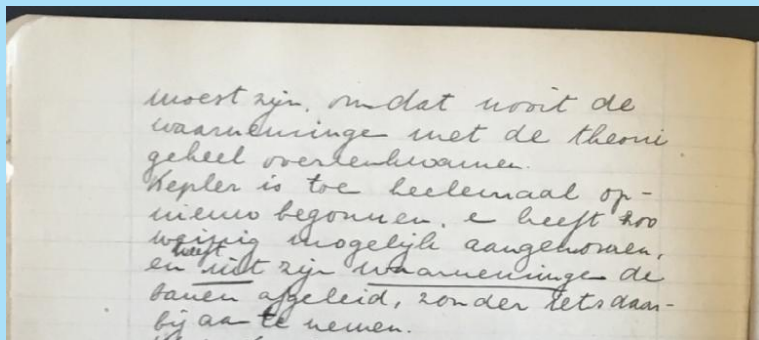 moest zijn, omdat nooit de
waarneminge met de theori
geheel overeenkwamen.
Kepler is toe heelemaal op-
nieuw begonnen, e heeft zoo
weinig mogelijk aangenomen,
heeft
en uit zijn waarneminge de
banen afgeleid, zonder iets daar-
bij aan te nemen.